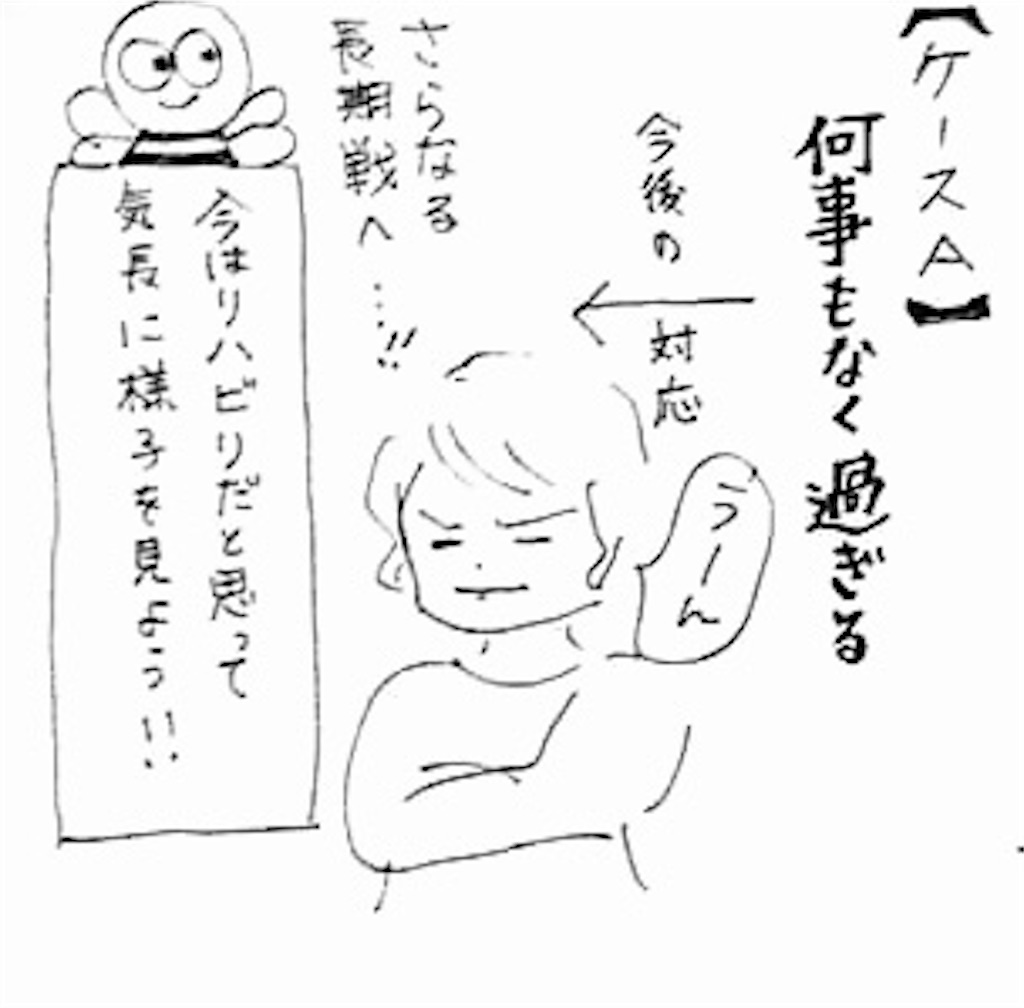 【ケースA】
何事もなく過ぎる
今後の
対応
うーん
さらなる
長期戦へ…!!
今はリハビリだと思って
気長に様子を見よう!!